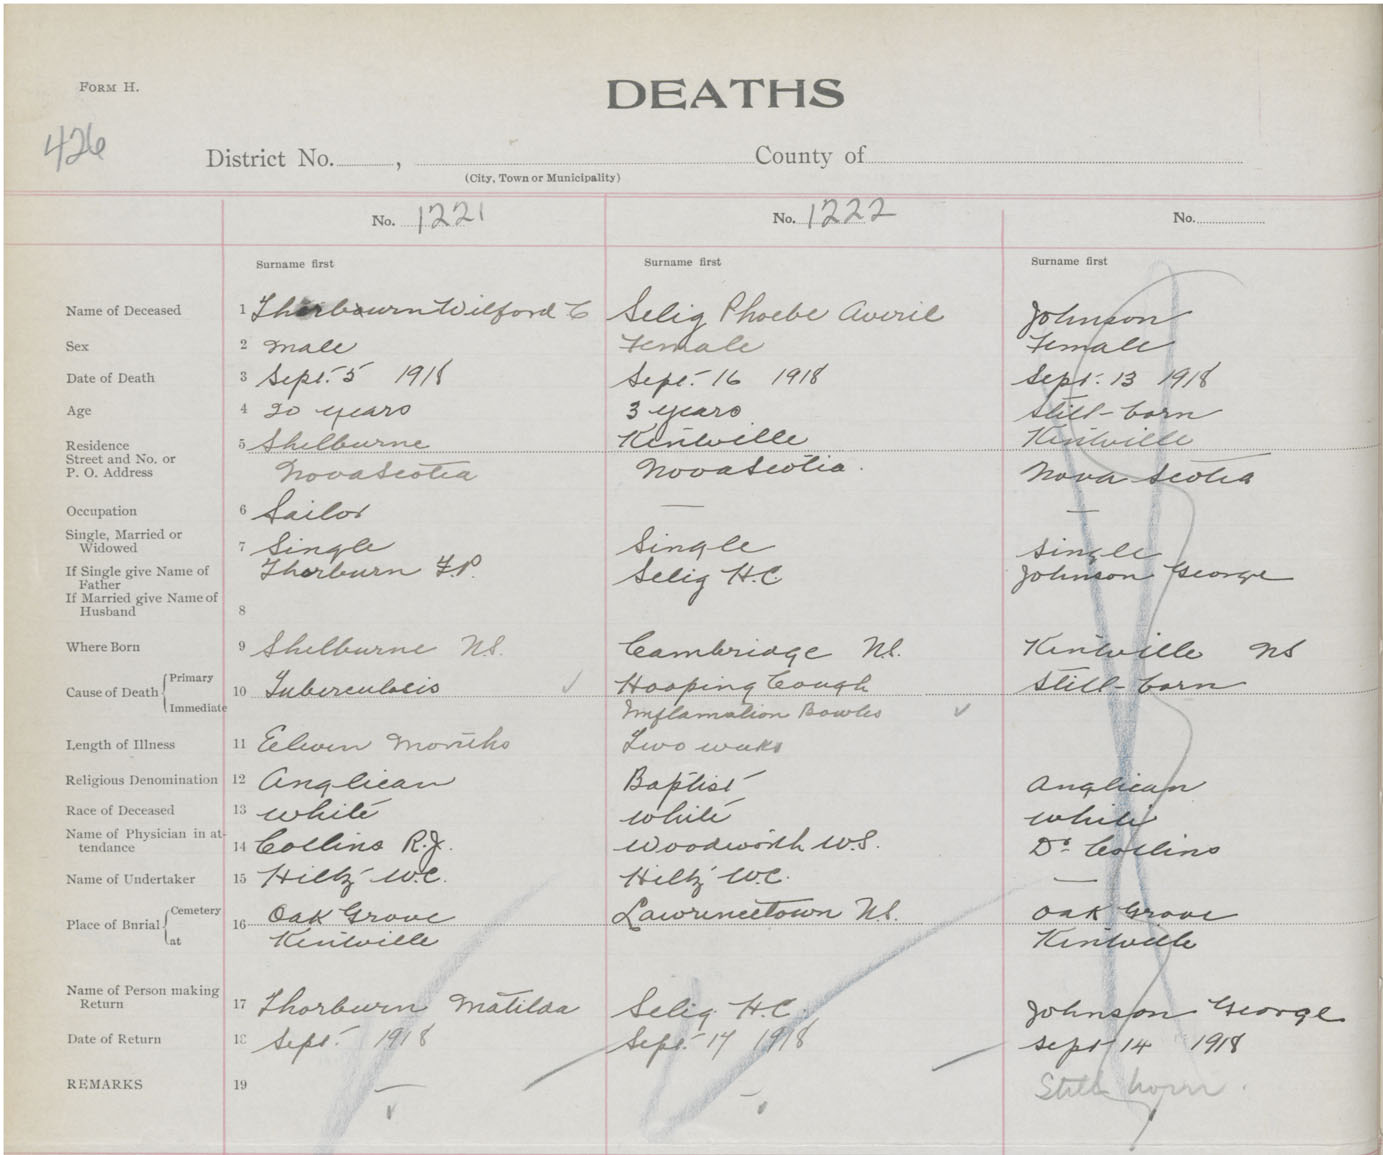 FORM H.
DEATHS
426
District No. , County of
(City, Town or Municipality)
No. 1221 No. 1222 No.
Surname first Surname first Surname first
Name of Deceased 1 Thorbourn Wilford C Selig Phoebe Averil Johnson
Sex 2 male Female Female
Date of Death 3 Sept. 5 1918 Sept. 16 1918 Sept. 13 1918
Age 4 20 years 3 years Still-born
Residence 5 Shelburne Kentville Kentville
Street and No. or
P. O. Address Nova Scotia Nova Scotia. Nova Scotia
Occupation 6 Sailor — —
Single, Married or
Widowed 7 Single Single Single
If Single give Name of Thorburn F.P. Selig H.C Johnson George
Father
If Married give Name of
Husband 8
Where Born 9 Shelburne N.S. Cambridge N.S. Kentville NS
Cause of Death Primary 10 Tuberculosis ✓ Hooping Cough Still-born
Immediate Imflamation Bowles ✓
Length of Illness 11 Eleven Months Two weeks
Religious Denomination 12 Anglican Baptist Anglican
Race of Deceased 13 white white white
Name of Physician in at-
tendance 14 Collins R.J. Woodworth W.S. Dr Collins
Name of Undertaker 15 Hiltz W.C. Hiltz W.C. —
Place of Burial Cemetery 16 Oak Grove Lawrencetown N.S. Oak Grove
at Kentville Kentville
Name of Person making
Return 17 Thorburn Matilda Selig H.C. Johnson George
Date of Return 18 Sept. 1918 Sept. 17 1918 Sept 14 1918
REMARKS 19 — — Still born.
✓ ✓